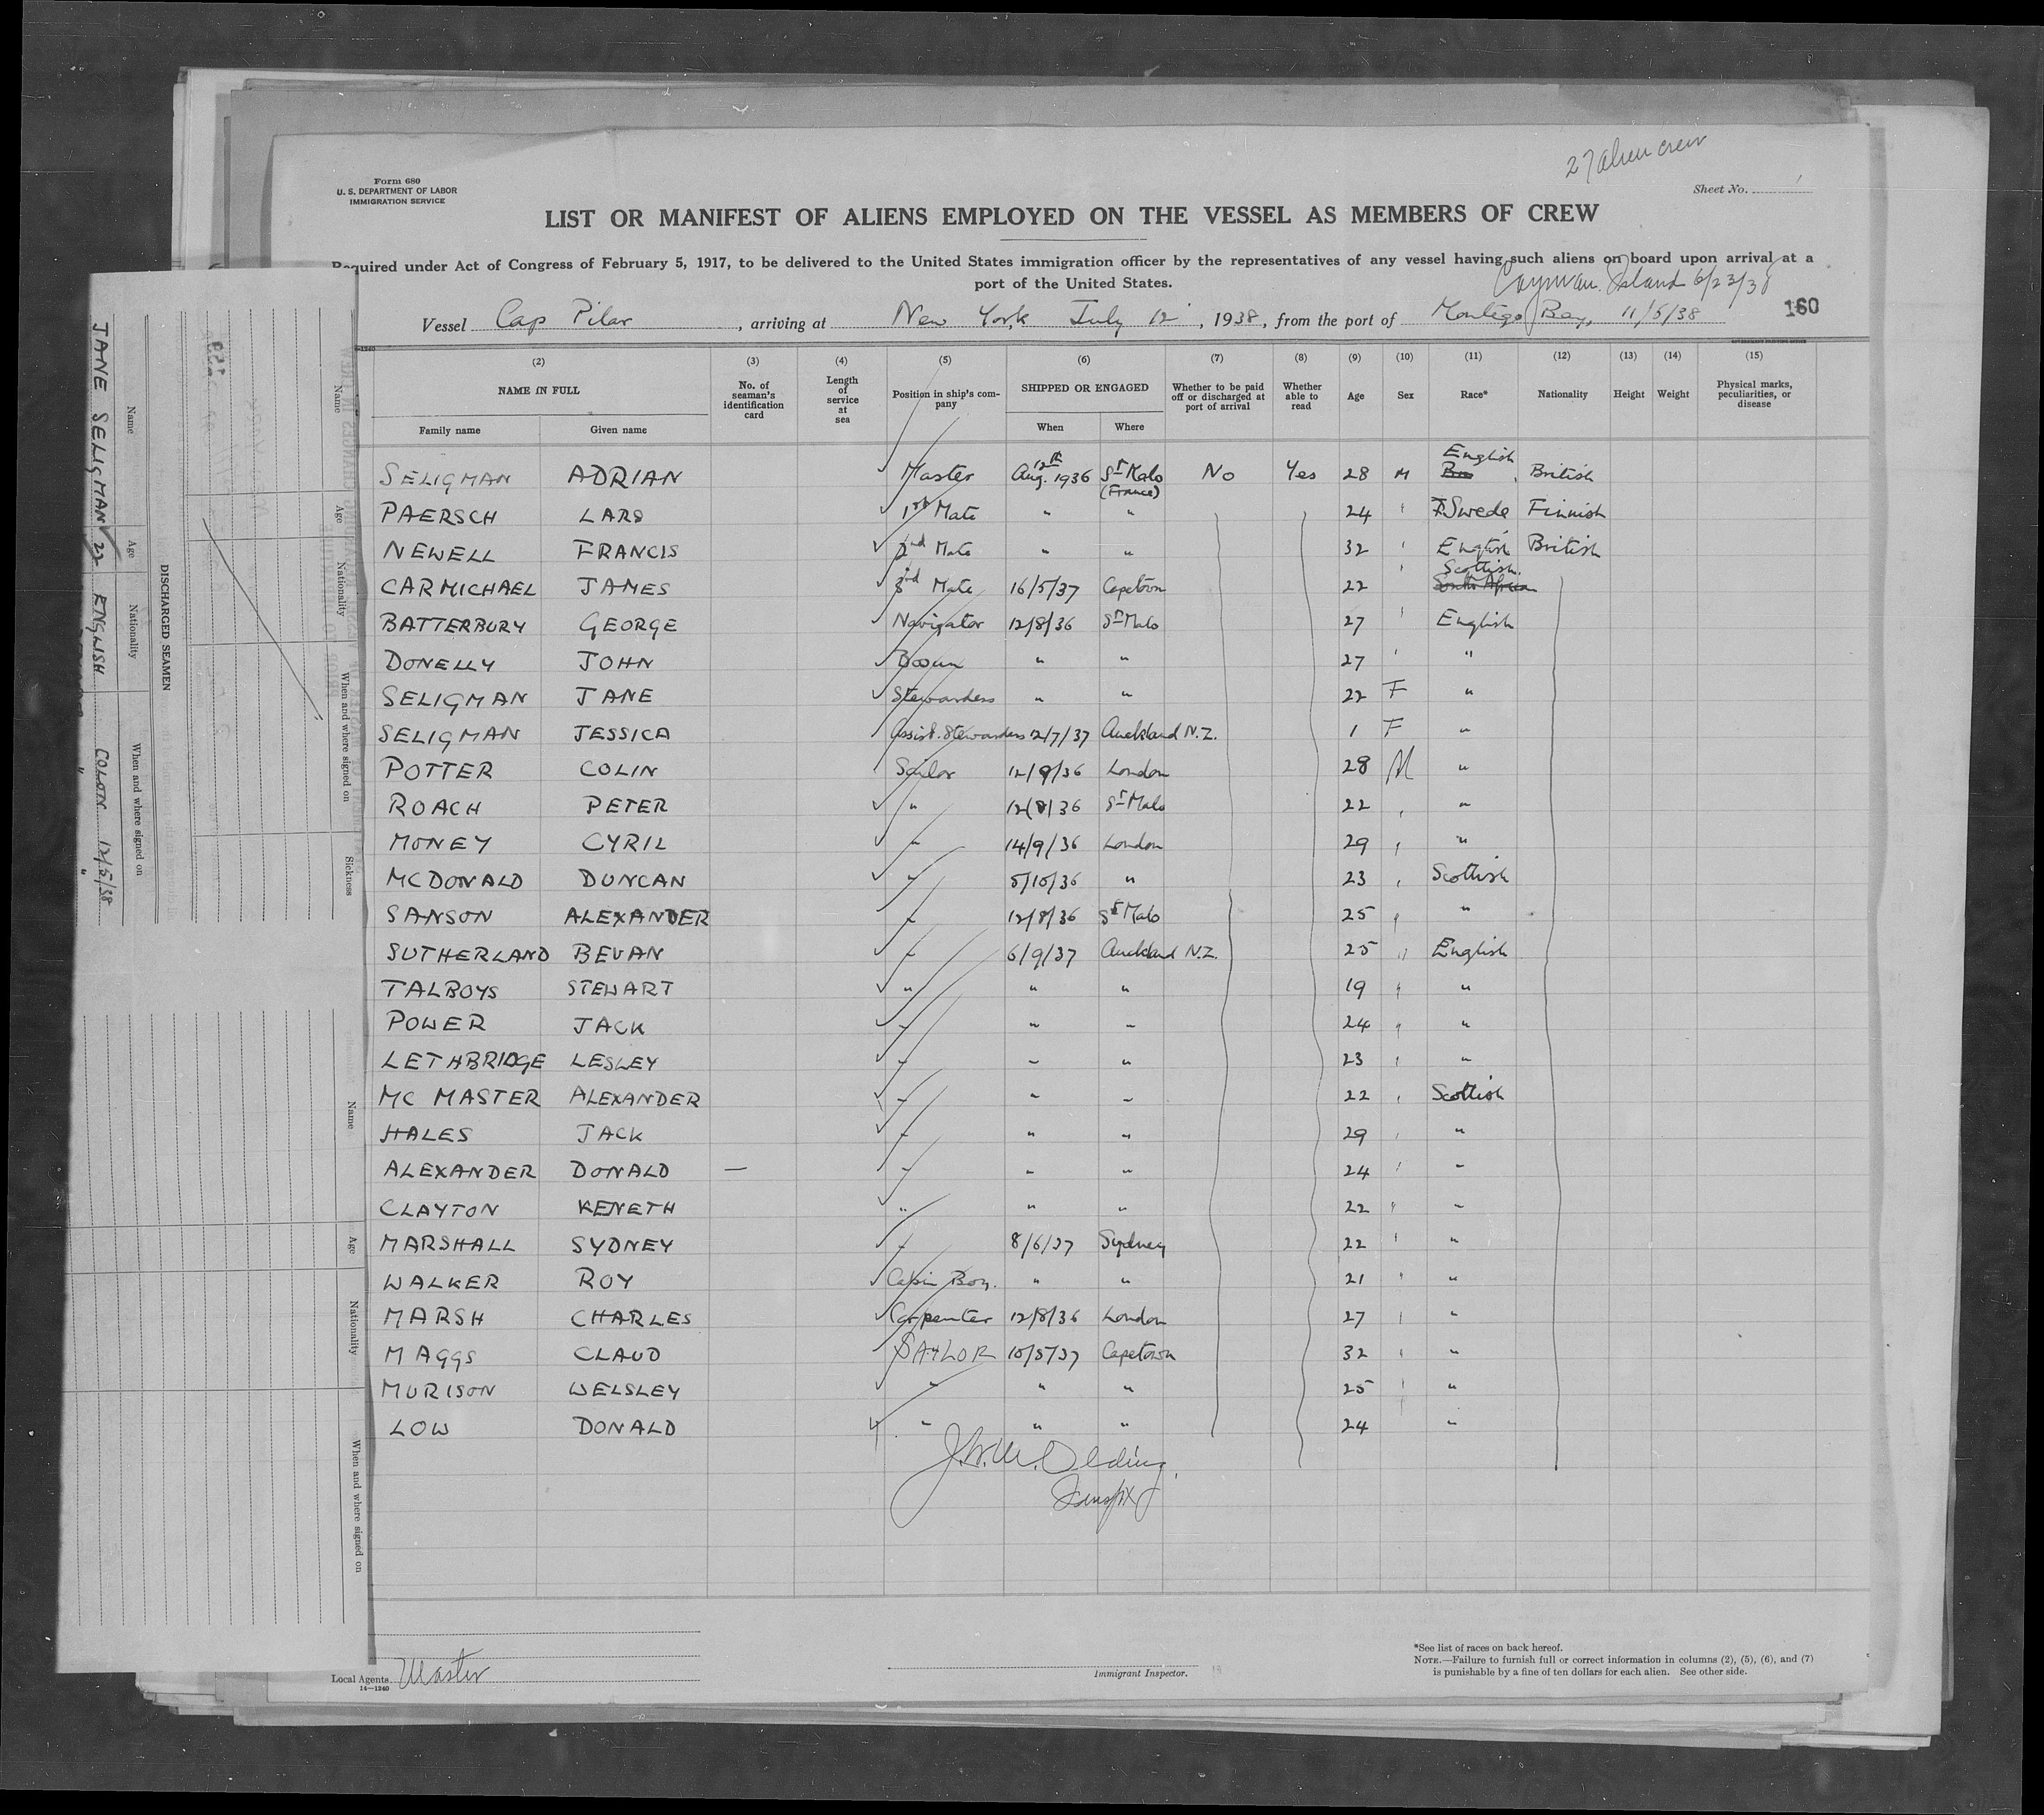 27 alien crew
Form 680
U. S. DEPARTMENT OF LABOR
IMMIGRATION SERVICE
Sheet No. 1
LIST OR MANIFEST OF ALIENS EMPLOYED ON THE VESSEL AS MEMBERS OF CREW
Required under Act of Congress of February 5, 1917, to be delivered to the United States immigration officer by the representatives of any vessel having such aliens on board upon arrival at a
port of the United States.
Cayman Island 6/23/38
Vessel Cap Pilar, arriving at New York July 12, 1938, from the port of Montego Bay, 11/5/38
160
(2) (3) (4) (5) (6) (7) (8) (9) (10) (11) (12) (13) (14) (15)
NAME IN FULL No. of seaman's identification card Length of service at sea Position in ship's company SHIPPED OR ENGAGED Whether to be paid off or discharged at port of arrival Whether able to read Age Sex Race* Nationality Height Weight Physical marks, peculiarities, or disease
Family name Given name When Where
SELIGMAN ADRIAN Master 12th Aug. 1936 St Malo (France) No Yes 28 M English British
PAERSCH LARS 1st Mate " " 24 " Swede Finnish
NEWELL FRANCIS 2nd Mate " " 32 " English British
CARMICHAEL JAMES 3rd Mate 16/5/37 Capetown 22 " Scottish South African
BATTERBURY GEORGE Navigator 12/8/36 St Malo 27 " English
DONELLY JOHN Bosun " " 27 " "
SELIGMAN JANE Stewardess " " 22 F "
SELIGMAN JESSICA Assist. Stewardess 12/7/37 Auckland N.Z. 1 F "
POTTER COLIN Sailor 12/9/36 London 28 M "
ROACH PETER " 12/8/36 St Malo 22 " "
MONEY CYRIL " 14/9/36 London 29 " "
MCDONALD DUNCAN " 5/10/36 " 23 " Scottish
SANSON ALEXANDER " 12/8/36 St Malo 25 " "
SUTHERLAND BEVAN " 6/9/37 Auckland N.Z. 25 " English
TALBOYS STEWART " " " 19 " "
POWER JACK " " " 24 " "
LETHBRIDGE LESLEY " " " 23 " "
MC MASTER ALEXANDER " " " 22 " Scottish
HALES JACK " " " 29 " "
ALEXANDER DONALD — " " " 24 " "
CLAYTON KENETH " " " 22 " "
MARSHALL SYDNEY " 8/6/37 Sydney 22 " "
WALKER ROY Cabin Boy. " " 21 " "
MARSH CHARLES Carpenter 12/8/36 London 27 " "
MAGGS CLAUD SAILOR 10/5/37 Capetown 32 " "
MURISON WELSLEY " " " 25 " "
LOW DONALD " " " 24 "
Local Agents Master
14—1240
Immigrant Inspector.
*See list of races on back hereof.
NOTE.—Failure to furnish full or correct information in columns (2), (5), (6), and (7)
is punishable by a fine of ten dollars for each alien. See other side.
JANE SELIGMAN 22 ENGLISH COLON 12/5/38
Name Age Nationality When and where signed on
DISCHARGED SEAMEN
Name Age Nationality When and where signed on Sickness
Name Age Nationality When and where signed on